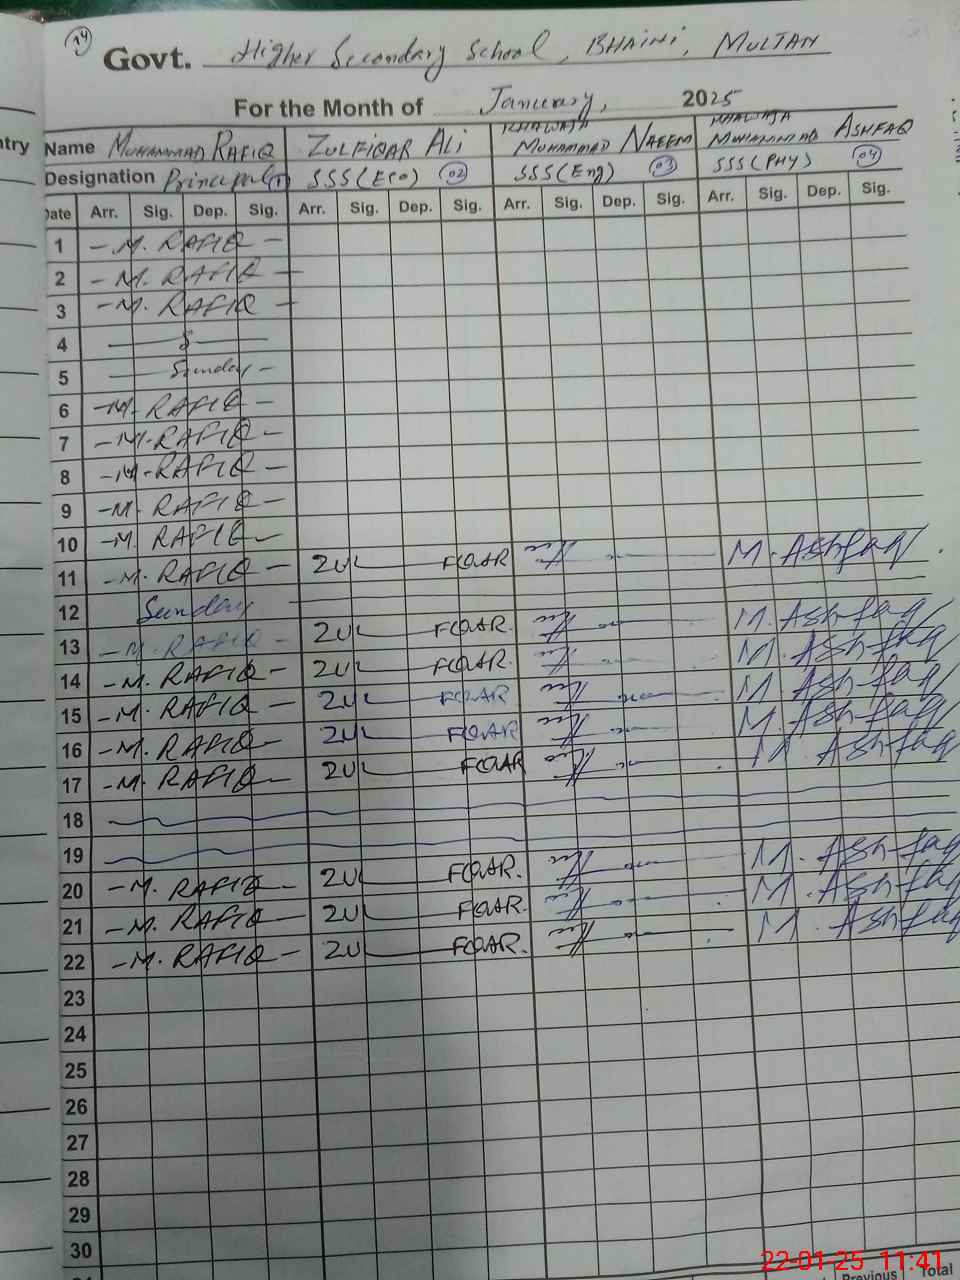 14
Govt. Higher Secondary School, BHAINI, MULTAN
For the Month of January, 2025
ntry
Name MUHAMMAD RAFIQ ZULFIQAR ALi KHAWAJA MUHAMMAD NAEEM KHAWAJA MUHAMMAD ASHFAQ
Designation Principal 01 SSS(Eco) 02 SSS(Eng) 03 SSS(PHY) 04
Date Arr. Sig. Dep. Sig. Arr. Sig. Dep. Sig. Arr. Sig. Dep. Sig. Arr. Sig. Dep. Sig.
1 -M. RAFIQ-
2 -M. RAFIQ-
3 -M. RAFIQ-
4
5 Sunday-
6 -M. RAFIQ-
7 -M. RAFIQ-
8 -M. RAFIQ-
9 -M. RAFIQ-
10 -M. RAFIQ-
11 -M. RAFIQ- ZUL FQAR M. Ashfaq
12 Sunday
13 -M. RAFIQ- ZUL FQAR. M. Ashfaq
14 -M. RAFIQ- ZUL FQAR. M. Ashfaq
15 -M. RAFIQ- ZUL FQAR M. Ashfaq
16 -M. RAFIQ- ZUL FQAR M. Ashfaq
17 -M. RAFIQ- ZUL FQAR M. Ashfaq
18
19
20 -M. RAFIQ- ZUL FQAR. M. Ashfaq
21 -M. RAFIQ- ZUL FQAR. M. Ashfaq
22 -M. RAFIQ- ZUL FQAR. M. Ashfaq
23
24
25
26
27
28
29
30
Previous Total
22-01-25 11:41